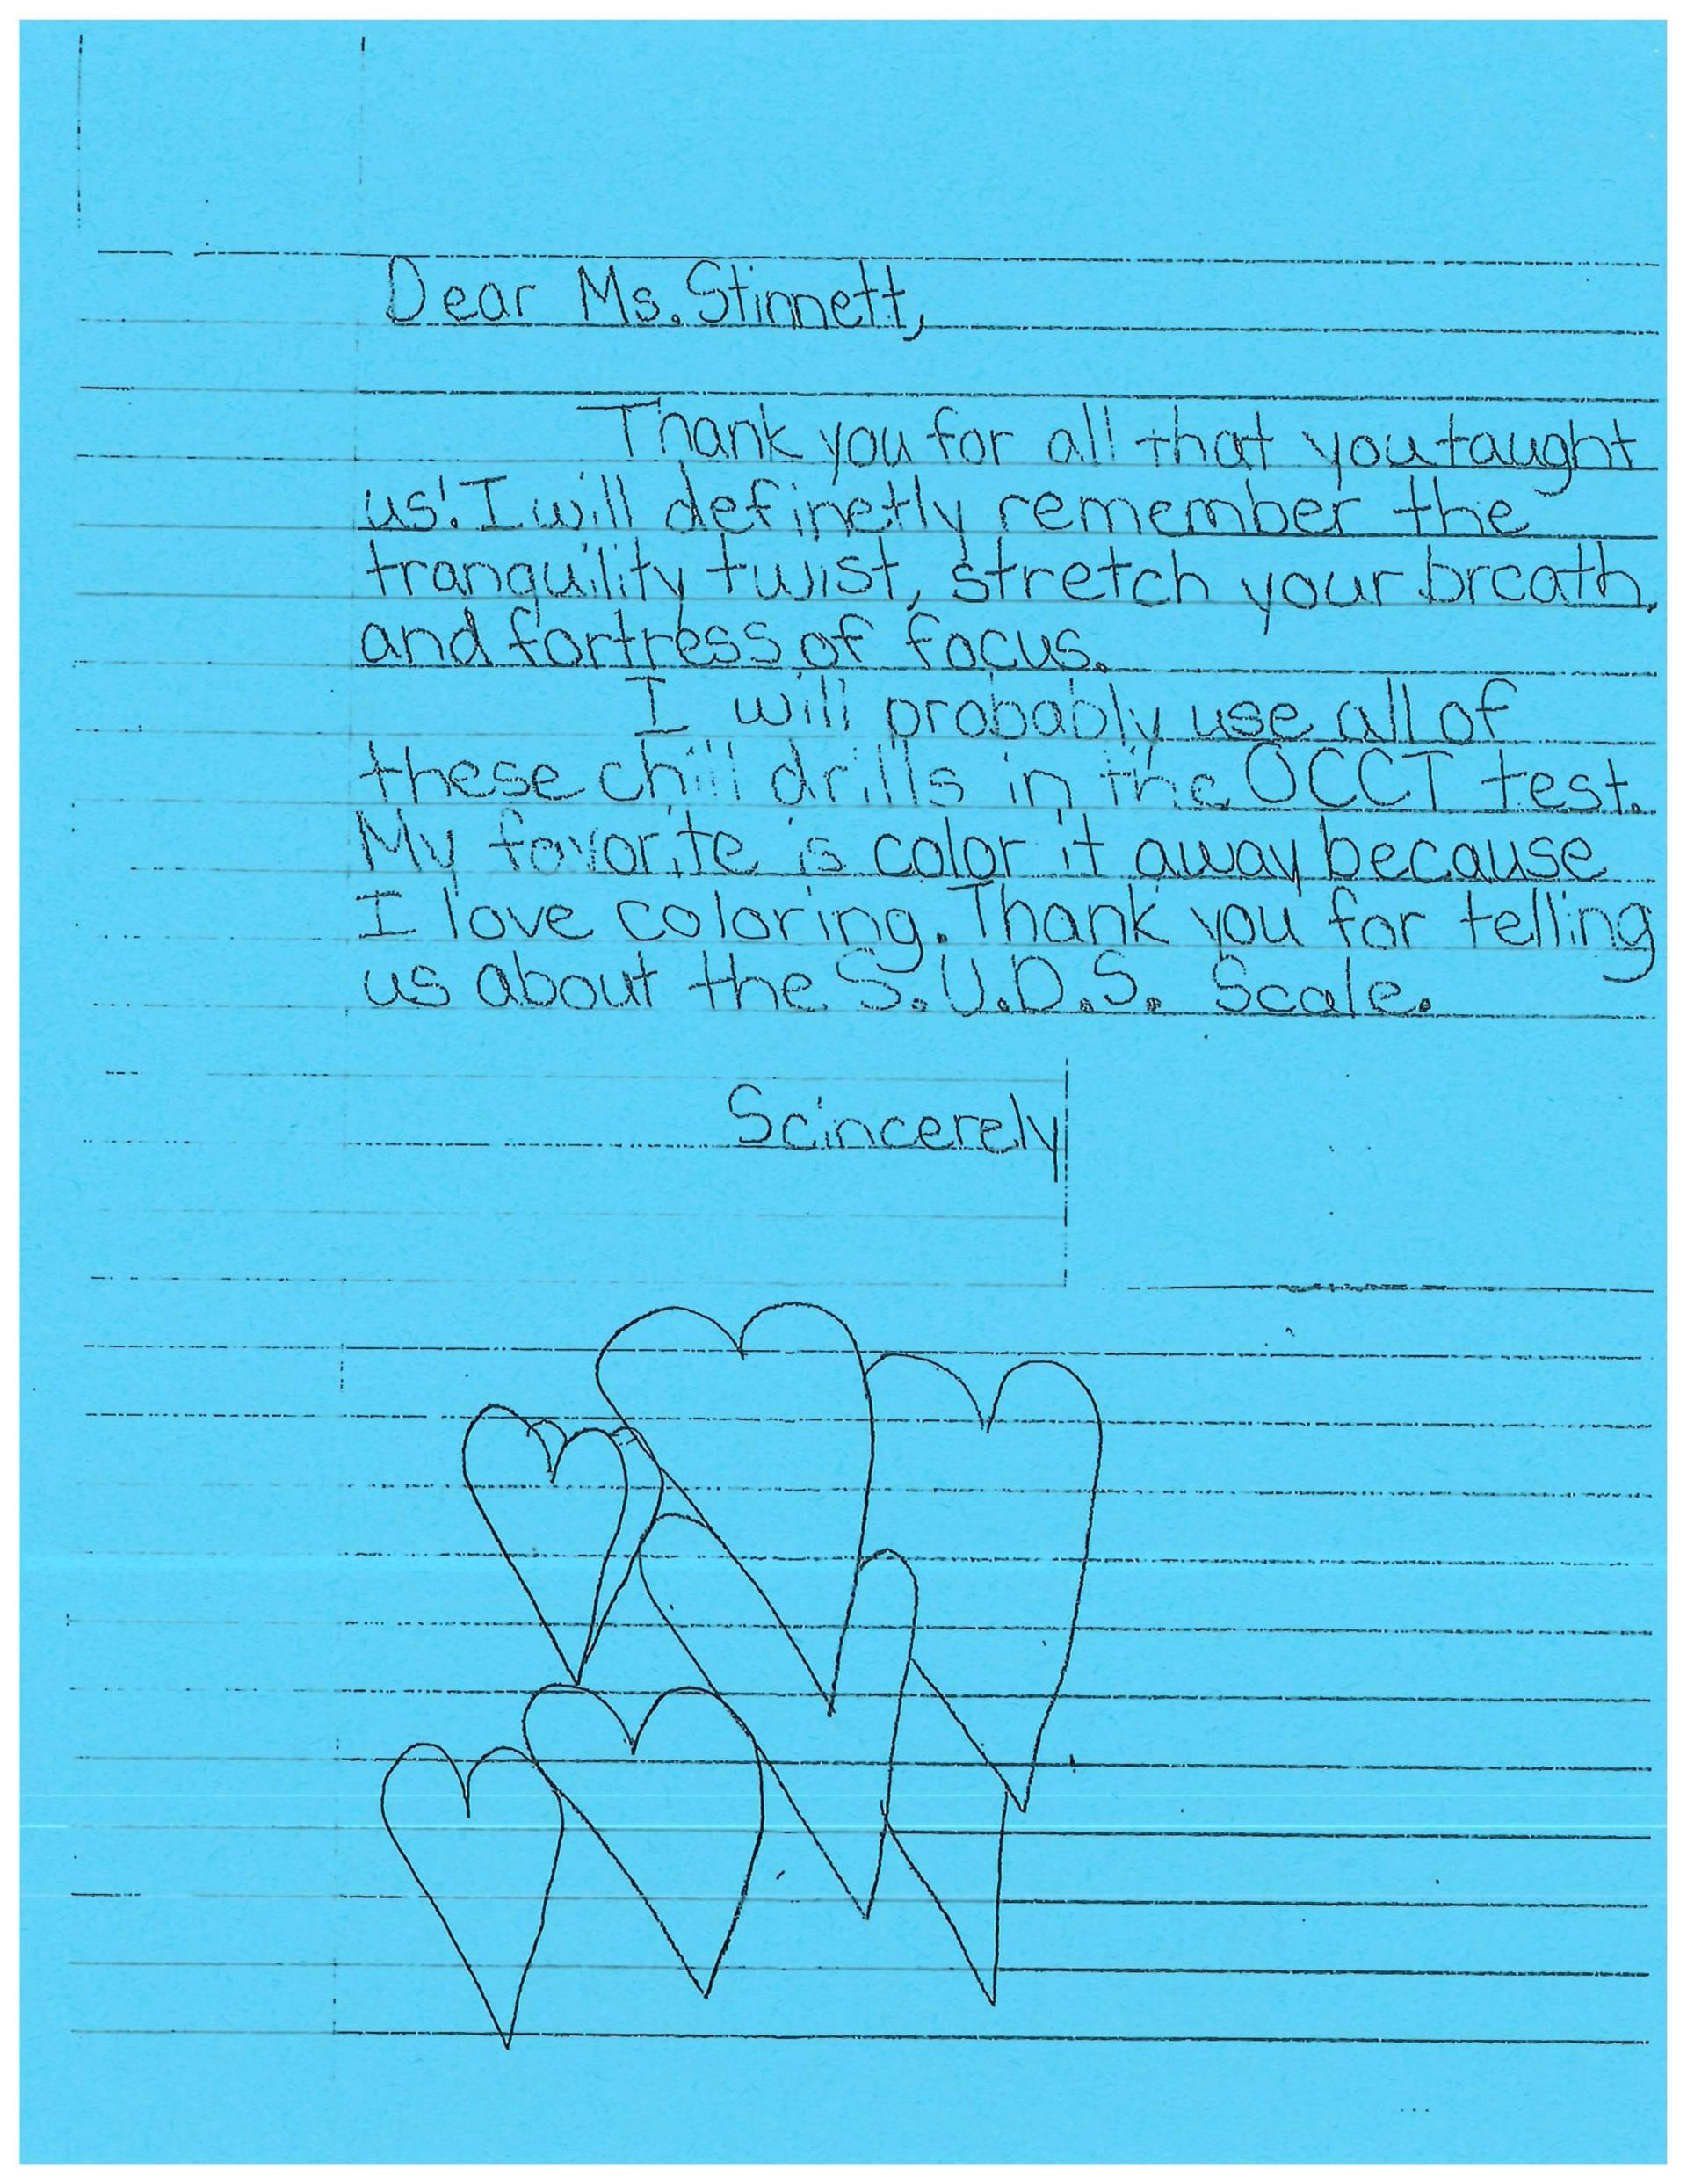 Dear Ms. Stinnett,
Thank you for all that you taught
us! I will definetly remember the
tranquility twist, stretch your breath,
and fortress of focus.
I will probably use all of
these chill drills in the OCCT test.
My favorite is color it away because
I love coloring. Thank you for telling
us about the S.U.D.S. Scale.
Scincerely